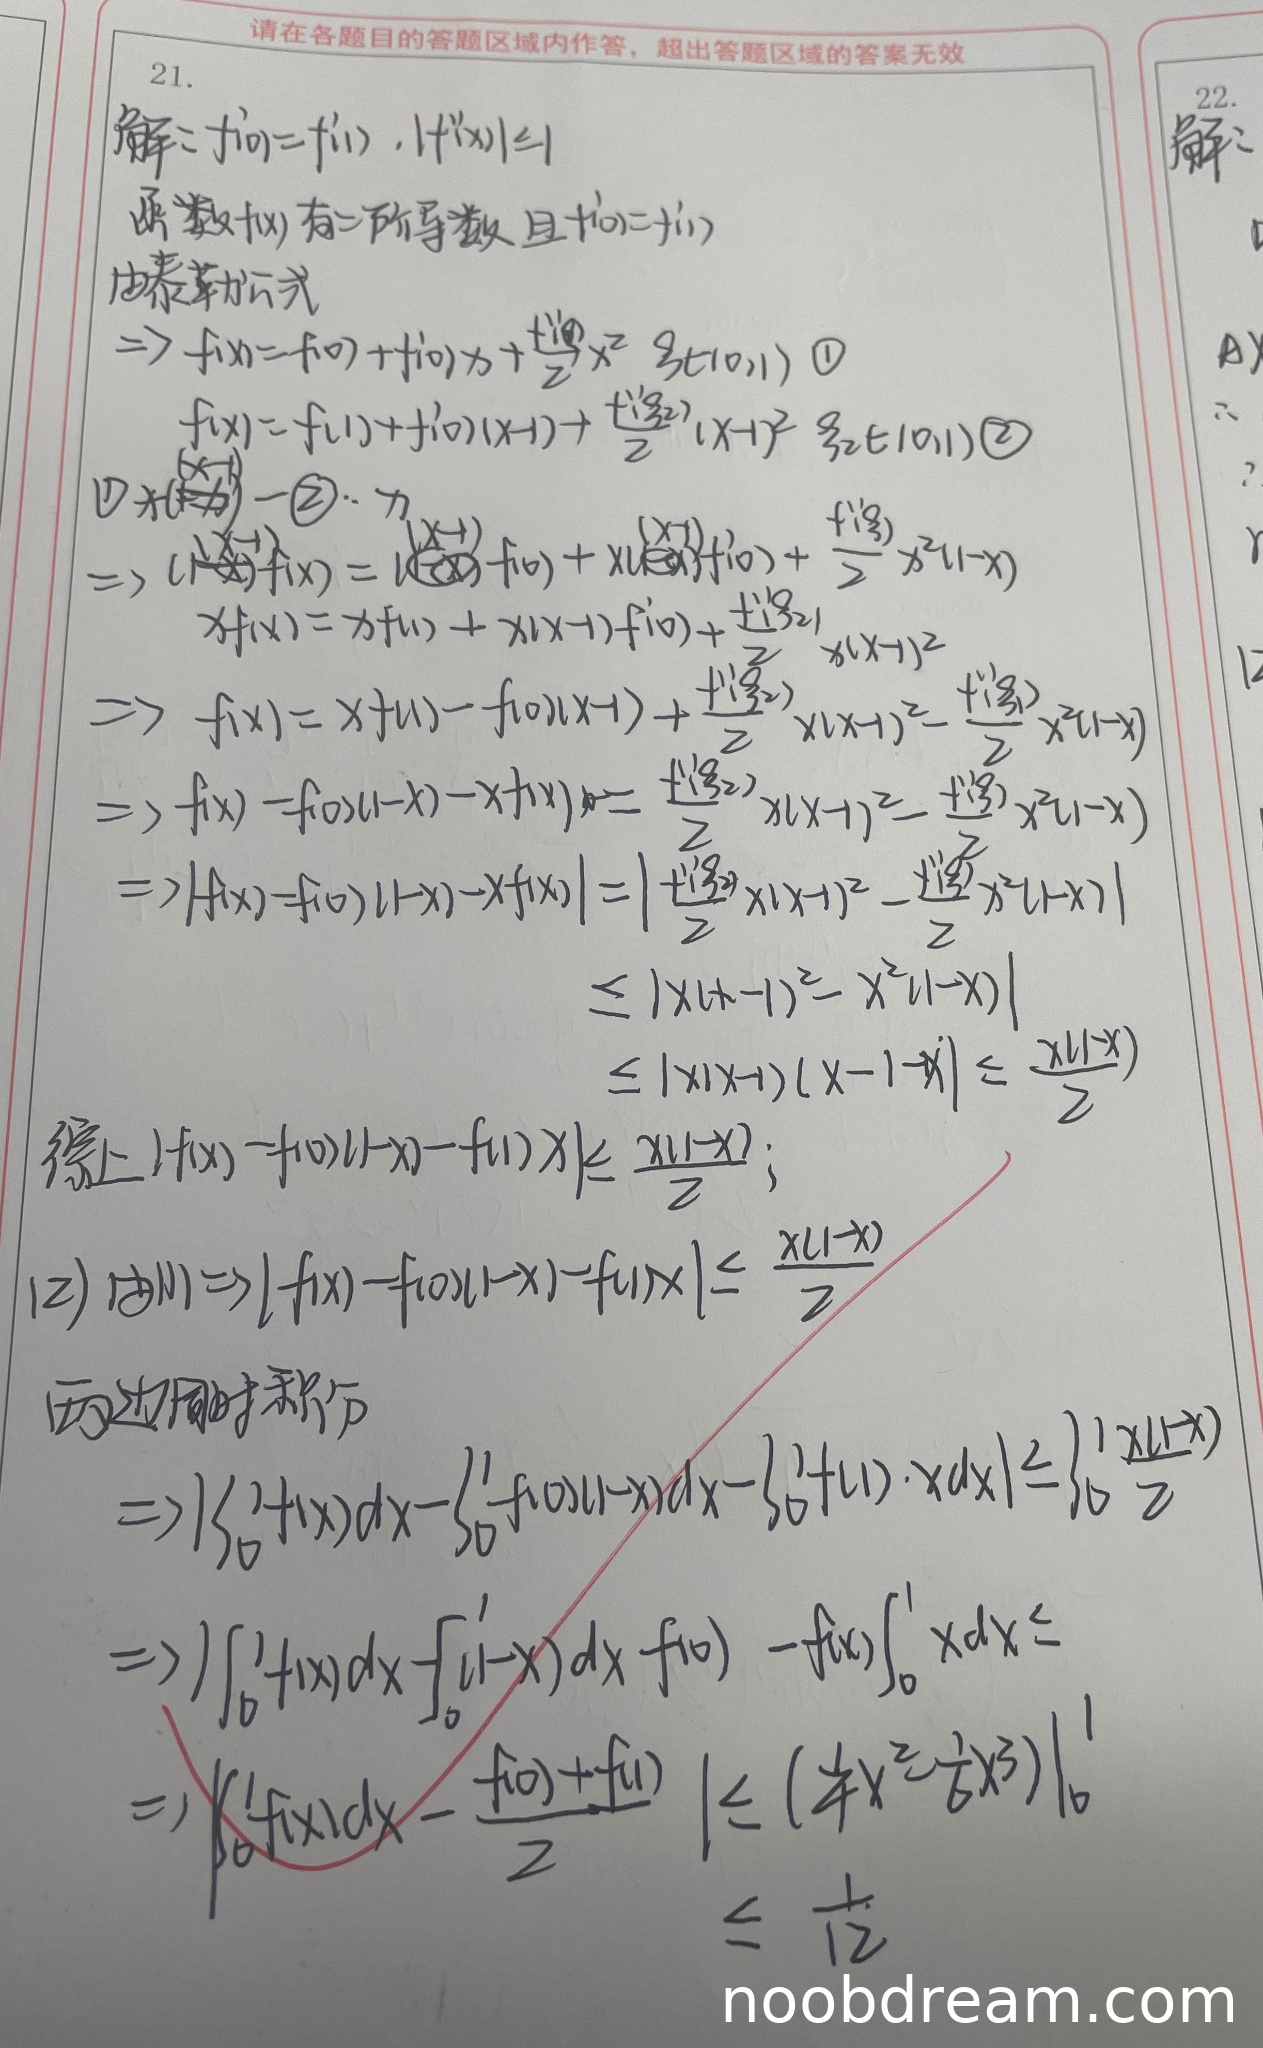 请在各题目的答题区域内作答，超出答题区域的答案无效
21.
解：f'(0)=f'(1)，|f''(x)|≤1
函数f(x)有二阶导数且f'(0)=f'(1)
由泰勒公式
=> f(x)=f(0)+f'(0)x+f''(ξ)/2 x² ξ∈(0,1) ①
f(x)=f(1)+f'(0)(x-1)+f''(ξ₂)/2 (x-1)² ξ₂∈(0,1) ②
①×(x-1)-②·x
=> (x-1)f(x)=(x-1)f(0)+x(x-1)f'(0)+f''(ξ)/2 x²(1-x)
xf(x)=xf(1)+x(x-1)f'(0)+f''(ξ₂)/2 x(x-1)²
=> f(x)=xf(1)-f(0)(x-1)+f''(ξ₂)/2 x(x-1)²-f''(ξ₁)/2 x²(1-x)
=> f(x)-f(0)(1-x)-xf(x)=f''(ξ₂)/2 x(x-1)²-f''(ξ)/2 x²(1-x)
=> |f(x)-f(0)(1-x)-xf(x)|=|f''(ξ₂)/2 x(x-1)²-f''(ξ)/2 x²(1-x)|
≤|x(x-1)²-x²(1-x)|
≤|x(x-1)(x-1-x|≤x(1-x)/2
综上|f(x)-f(0)(1-x)-f(1)x|≤x(1-x)/2;
(2)由(1)=>|f(x)-f(0)(1-x)-f(1)x|≤x(1-x)/2
两边同时积分
=>|∫₀¹f(x)dx-∫₀¹f(0)(1-x)dx-∫₀¹f(1)·xdx|≤∫₀¹x(1-x)/2
=>|∫₀¹f(x)dx-∫₀¹(1-x)dx f(0) -f(x)∫₀¹xdx≤
=>|∫₀¹f(x)dx-f(0)+f(1)/2|≤(1/4x²-1/6x³)|₀¹
≤1/12
22.
解：
noobdream.com